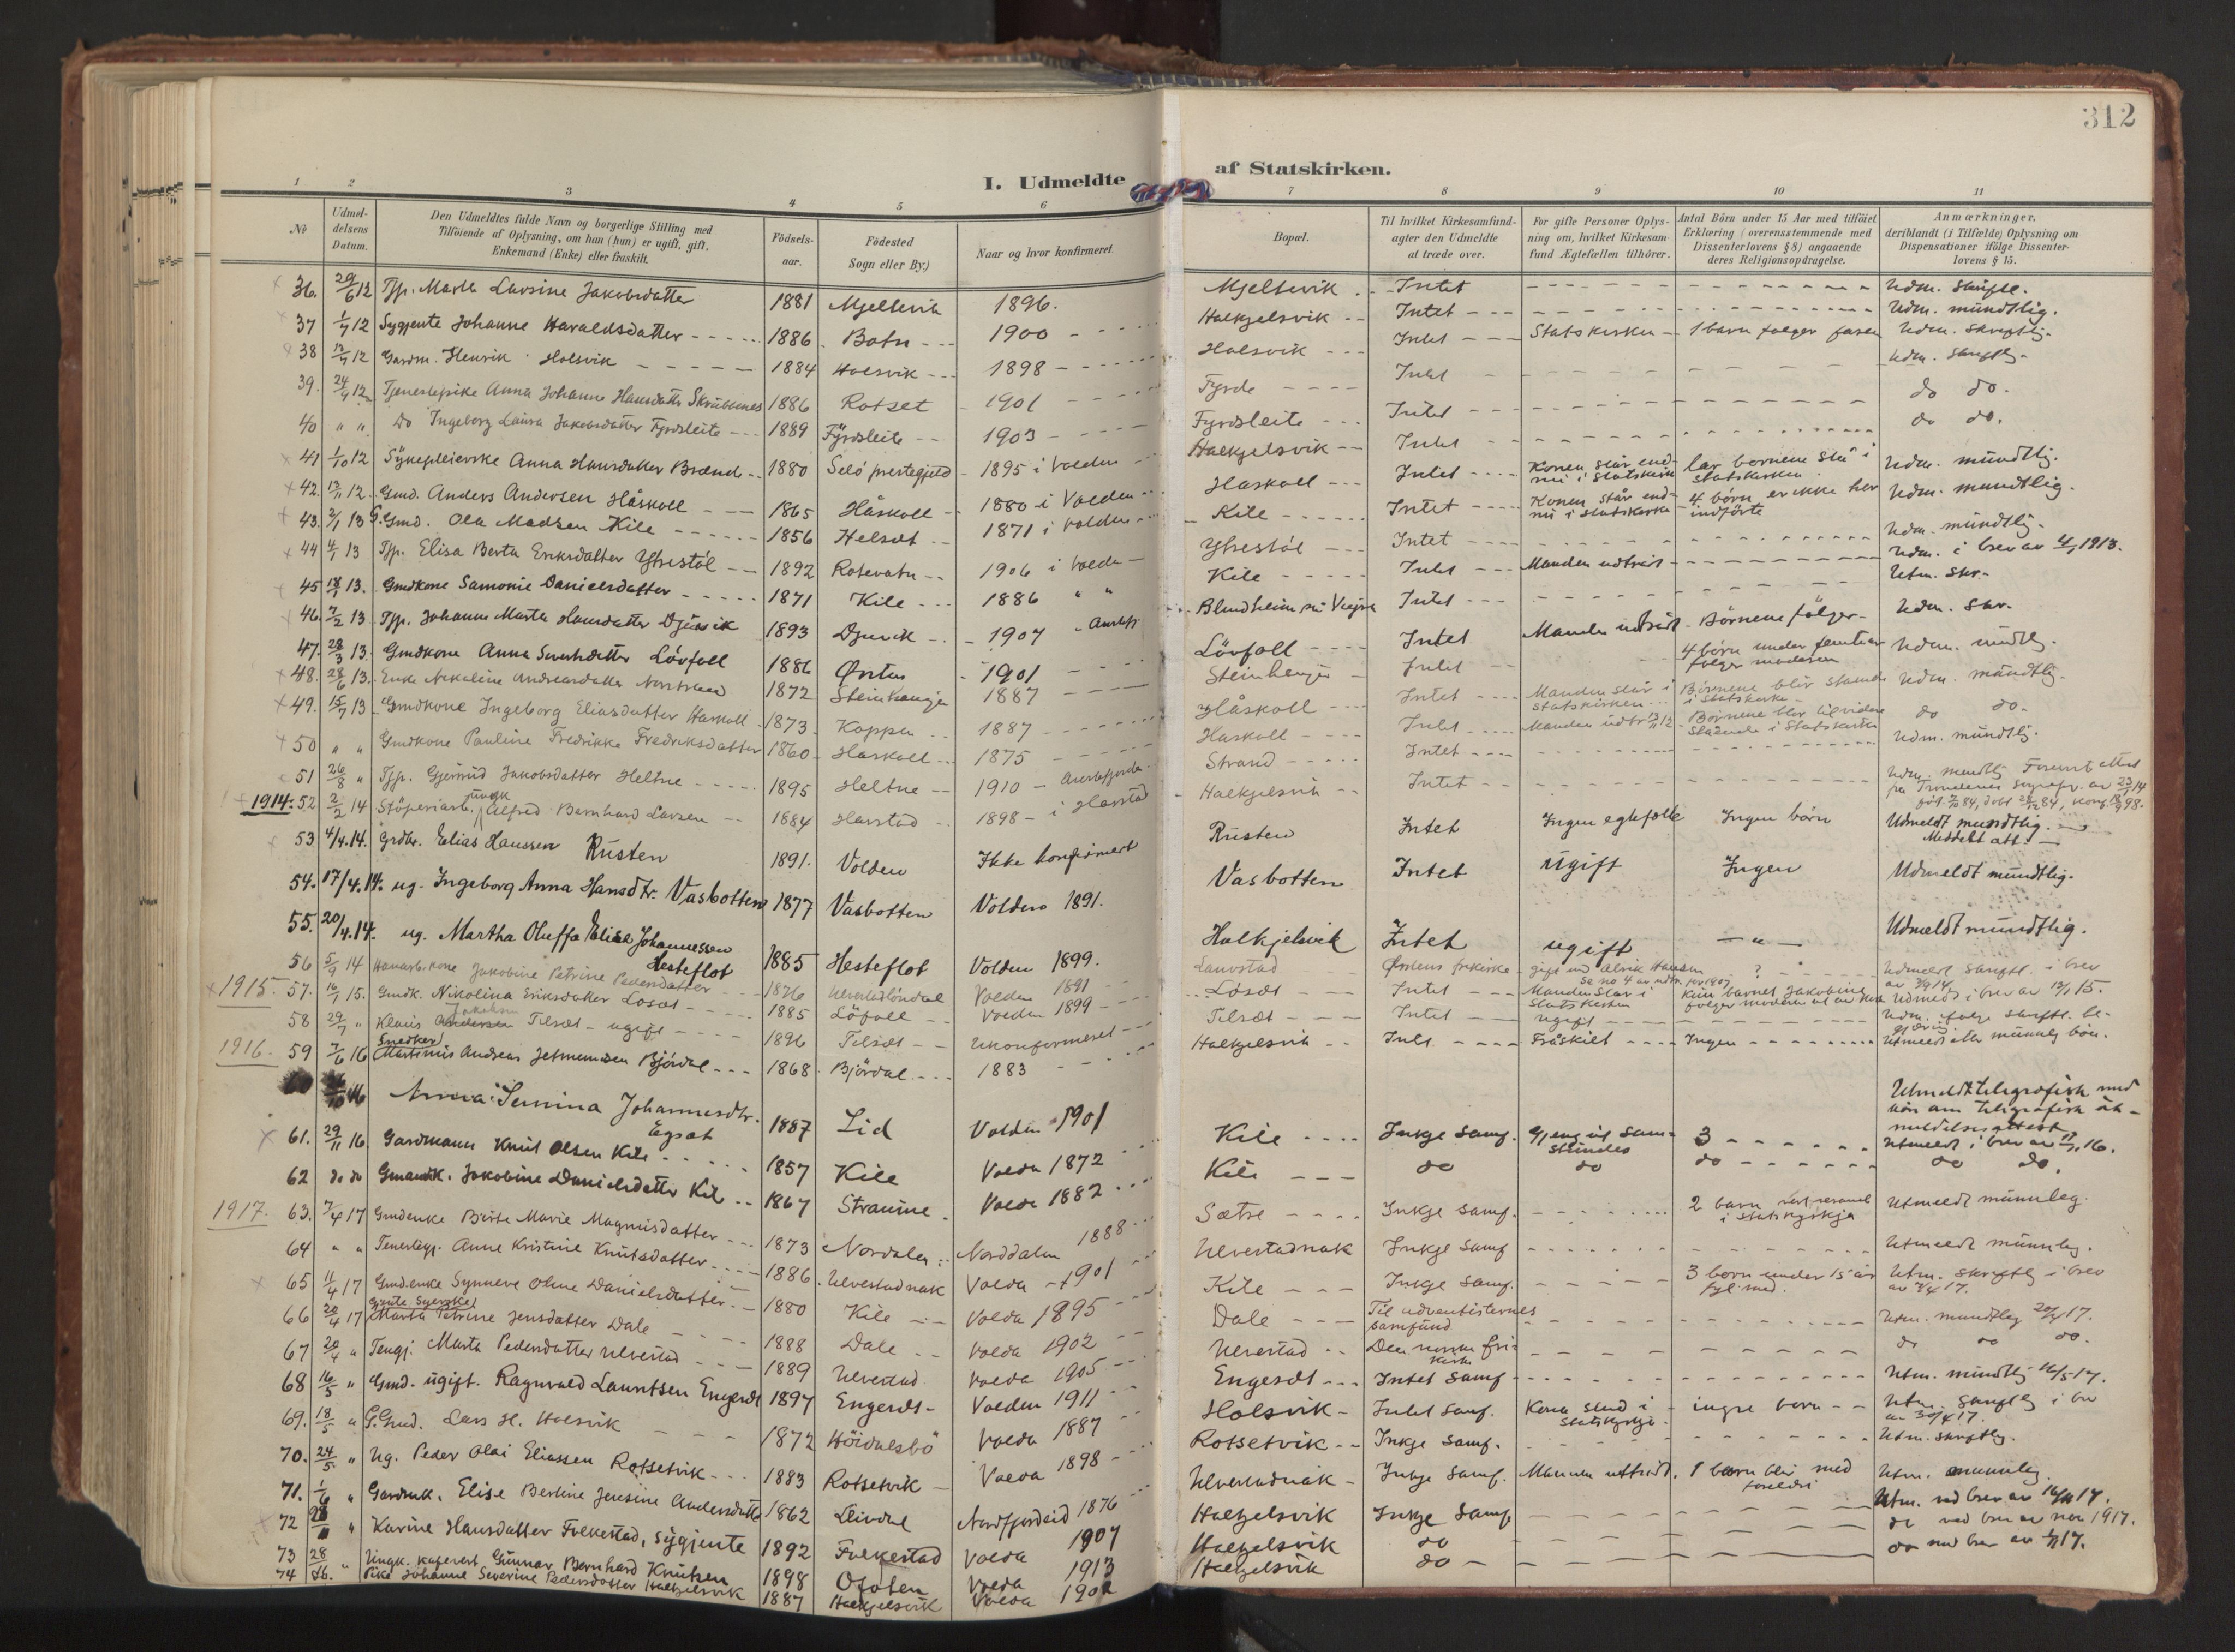 312
I. Udmeldte af Statskirken.
1 2 3 4 5 6 7 8 9 10 11
No
Udmel-
delsens
Datum.
Den Udmeldtes fulde Navn og borgerlige Stilling med
Tilføiende af Oplysning, om han (hun) er ugift, gift,
Enkemand (Enke) eller fraskilt.
Fødsels-
aar.
Fødested
Sogn eller By.)
Naar og hvor konfirmeret.
Bopæl.
Til hvilket Kirkesamfund
agter den Udmeldte
at træde over.
For gifte Personer Oplys-
ning om, hvilket Kirkesam-
fund Ægtefællen tilhører.
Antal Börn under 15 Aar med tilföiet
Erklæring (overensstemmende med
Dissenterlovens § 8) angaaende
deres Religionsopdragelse.
Anmærkninger.
deriblandt (i Tilfælde) Oplysning om
Dispensationer ifölge Dissenter-
lovens § 15.
36. 29/6 12 Tjp. Marta Lavsine Jakobsdatter 1881 Mjeltevik 1896. Mjeltevik Intet Udm. skriftl.
37 1/7 12 Sygjente Johanne Haraldsdatter 1886 Botn 1900 Halkjelsvik Intet Udm. mundtlig.
38 12 Gardm. Henrik Holsvik 1884 Holsvik 1898 Holsvik Intet Statskirken 1 barn følger faren Udm. skriftlig.
39. 24/7 12 Tjenestepike Anna Johanne Hansdatter Skrubbenes 1886 Rotset 1901 Fyrde Intet Udm. skriftlig.
40 " " Do Ingeborg Laura Jakobsdatter Fyrdsleite 1889 Fyrdsleite 1903 Fyrdsleite Intet do do.
41 1/10 12 Sykepleierske Anna Hansdatter Brænd 1880 Selö prestegjeld 1895 i Volden Halkjelsvik Intet do do.
42. 12 Gmd. Anders Andersen Håskoll 1865 Håskoll 1880 i Volden Haskoll Intet Konen står end-
nu i statskirken lar bornene stå i
statskirken Udm. mundtlig.
43. 2/1 13 G.Gmd. Ola Madsen Kile 1856 Helset 1871 i Volden Kile Intet Konen står end-
nu i statskirken 4 börn er ikke her
indførte Udm. mundtlig.
44 4/1 13 Tjp. Elisa Berta Eriksdatter Ytrestöl 1892 Rotevatn 1906 i Volden Ytrestöl Intet Udm. mundtlig.
45 18/1 13. Gmdkone Samonie Danielsdatter 1871 Kile 1886 " " Kile Intet Manden udtrådt Udm. i brev av 4/1 1913.
46. 7/2 13 Tjp. Johanne Marta Hansdatter Djuvik 1893 Djuvik 1907 Intet Utm. skr.
47. 28/3 13. Gmdkone Anna Sivertsdatter Lövfoll 1886 Örsten 1901 Lövfoll Intet Manden udtrådt Börnene fölger Udm. skr.
48. 28/6 13. Enke Nikoline Andreasdatter 1872 Steinhaugen 1887 Intet 4 börn under femten
følger moderen Udm. mundtlig.
49. 15/7 13 Gmdkone Ingeborg Eliasdatter Haskoll 1873 Koppen 1887 Håskoll Intet Manden står i
statskirken Börnene blir stående
i statskirken Udm. mundtlig.
50 " " Gmdkone Pauline Fredrikke Fredriksdatter 1860 Haskoll 1875 Haskoll Intet Manden udtr. Börnene blir tilvidere
stående i Statskirken do do.
51 26/8 " Tjp. Gjertrud Jakobsdatter Heltne 1895 Heltne 1910 Strand Intet Udm. mundtlig.
1914. 52 2/2 14 Stöperiarb. ungk. Alfred Bernhard Larsen 1884 Harstad 1898 i Harstad Halkjelsvik Intet Udm. mundtlig
53 4/4.14. Grdbr. Elias Hanssen Rusten 1891. Volden Ikke konfirmert Rusten Intet Ingen egtefelle Ingen börn Udmeldt mundtlig.
Meddelt att.
54. 17/4.14. ug. Ingeborg Anna Hansdtr. Vasbotten 1877 Vasbotten Volden 1891. Vasbotten Intet Ugift Ingen Udmeldt mundtlig.
55. 20/4.14. ug. Martha Oluffa Elise Johannessen
Hesteflot 1885 Hesteflot Volden 1899. Halkjelsvik Intet ugift — " — Udmeldt mundtlig.
56 5/9 14 kone Jakobine Petrine Pedersdatter 1876 Volden 1891 Örstens frikirke gift med Alrik Hansen
Se no 4 av ? Udmeldt skriftl. i brev
1915. 57. 16/1 15. Gmdk. Nikolina Eriksdatter Löset 1885 Löfoll Volden 1899 Löset Intet Manden står i
Statskirken Kun barnet Jakobine
følger moderen Udmeldt i brev av 15.
58 29/7 " Klaus Jakobsen Tilset - ugift 1896 Tilset Ukonfirmeret Tilset Intet ugift Udm. ifølge skriftl. be-
gjæring
1916. 59 7/6 16 Snedker Martinus Andreas Jetmundsen Bjørdal 1868 Björdal 1883 Halkjelsvik Intet Fråskilt Ingen Utmeldt etter munnleg bön.
16 Anna Semina Johannesdtr.
Egset 1887 Lid Volden 1901 Utmeldt telegrafisk med
bön om telegrafisk ut-
meldelsesattest
61. 29/11 16 Gardmann Knut Olsen Kile 1857 Kile Volda 1872 Kile Inkje Samf. 3 Utmeldt i brev av 16.
62 do do Gmannk. Jakobine Danielsdatter Kile 1867 Straume Volda 1882 Kile do do do do do.
1917. 63. 7/4 17 Gmdenke Birte Marie Magnusdatter 1873 Nordalen Norddalen 1888 Sætre Inkje samf. 2 barn
i statskyrkja Utmeldt munnleg.
64 " " Tenestegj. Anne Kristine Knutsdatter 1886 Ulvestadnak Volda 1901 Ulvestadnak Inkje Samf Utmeldt munnleg.
65 11/4 17 Gmdenke Synneve Oline Danielsdatter 1880 Kile Volda 1895 Kile Inkje Samf. 3 born under 15 år
fyl med. Utm. skriftleg i brev
66 20/4 17 Gjente Syerske Marta Petrine Jensdatter Dale 1888 Dale Volda 1902 Dale Til adventisternes
samfund Utm. mundtleg 20/4 17.
67 20/4 " Tengj. Marta Pedersdatter Ulvestad 1889 Ulvestad Volda 1905 Ulvestad Den norske fri-
kirke do do do.
68 16/5 " Gmd. ugift. Ragnvald Lauritsen Engeset 1897 Engeset Volden 1911 Engeset Intet Samf Utm. mundtlig 16/5 17.
69. 18/5 " G.Gmd. Lars H. Holsvik 1872 Höidalsbö Volda 1887 Holsvik Intet Samf. Kona stend i
statskyrkja ingre born Utm. skriftleg i brev
av 30/4 17.
70. 24/5 " Ug. Peder Olai Eliassen Rotsetvik 1883 Rotsetvik Volda 1898 Rotsetvik Inkje Samf. Utm. skriftleg.
71. 1/6 " Gardmk. Elise Bertine Jensine Andersdatter 1862 Leivdal Nordfjordeid 1876 Ulvestadnak Inkje Samf. Mannen uttrådt. 1 barn blir med
foreldri Utm. munnleg.
72 28 " Karine Hansdatter Folkestad, sygjente 1892 Folkestad Volda 1907 Halkjelsvik Inkje Samf Utm. ved brev av 17.
73 28 " Ungk. Gunnar Bernhard Knutsen 1898 Ofoten Volda 1913 Halkjelsvik do do ved brev av nov 1917.
74 do. Pike Johanne Severine Pedersdatter Halkjelsvik 1887 Halkjelsvik Volda 1902 Halkjelsvik do do med brev av 17.